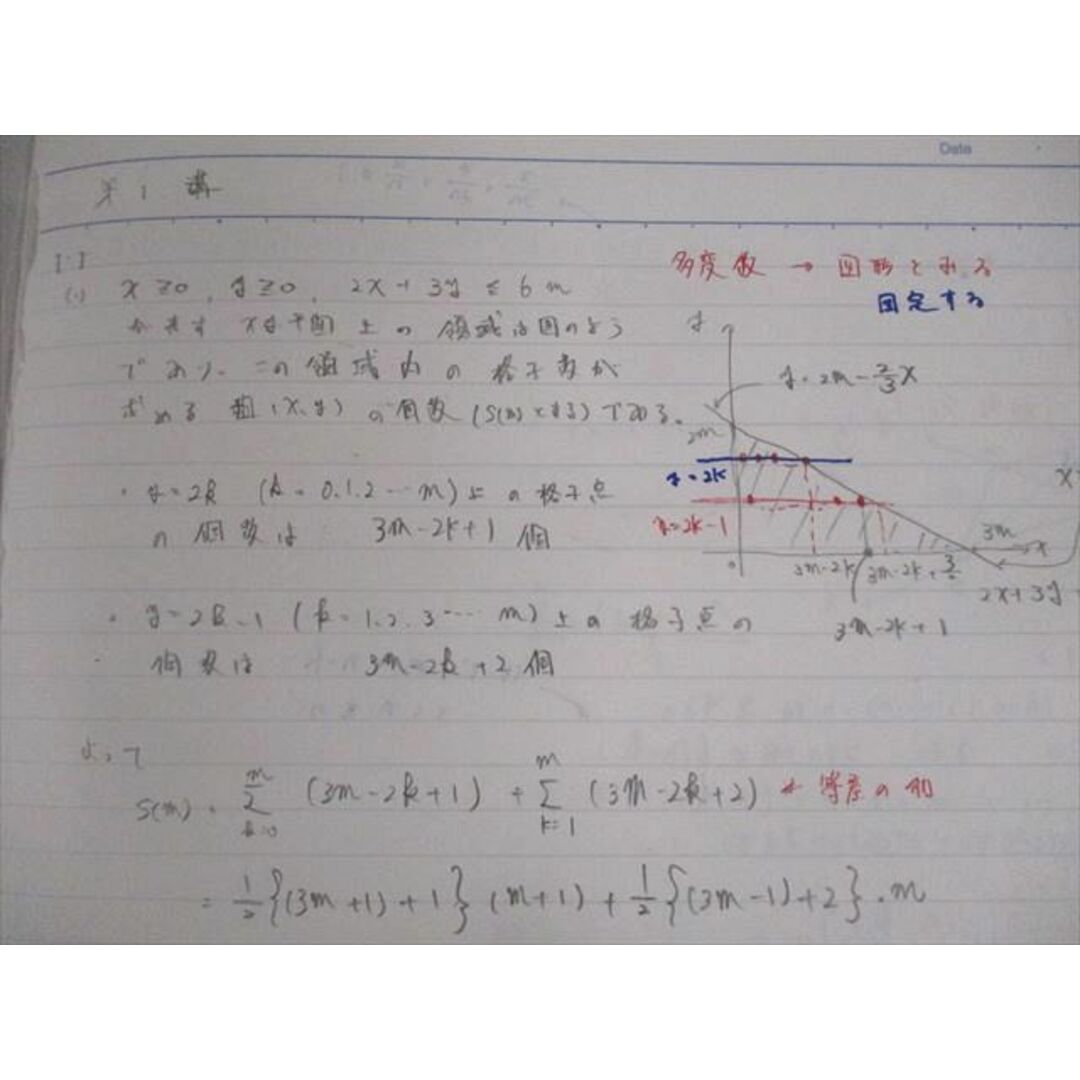 Date
第1講
1.1
(1) x≧0, y≧0, 2x+3y≦6m
かxy平面上の領域は図のよう
であり、この領域内の格子点が
求める組(x,y)の個数(S(m)とする)である.
多変数 → 図形とみる
固定する
y
y=2m-2/3x
2m
y=2k
y=2k-1
0
3m-2k
3m-2k+3/2
3m
x
2x+3y
3m-2k+1
・y=2k (k=0.1.2…m)上の格子点
の個数は 3m-2k+1 個
・y=2k-1 (k=1.2.3…m)上の格子点の
個数は 3m-2k+2 個
よって
S(m)=Σ[k=0→m](3m-2k+1)+Σ[k=1→m](3m-2k+2) ← 等差の和
=1/2{(3m+1)+1}(m+1)+1/2{(3m-1)+2}・m